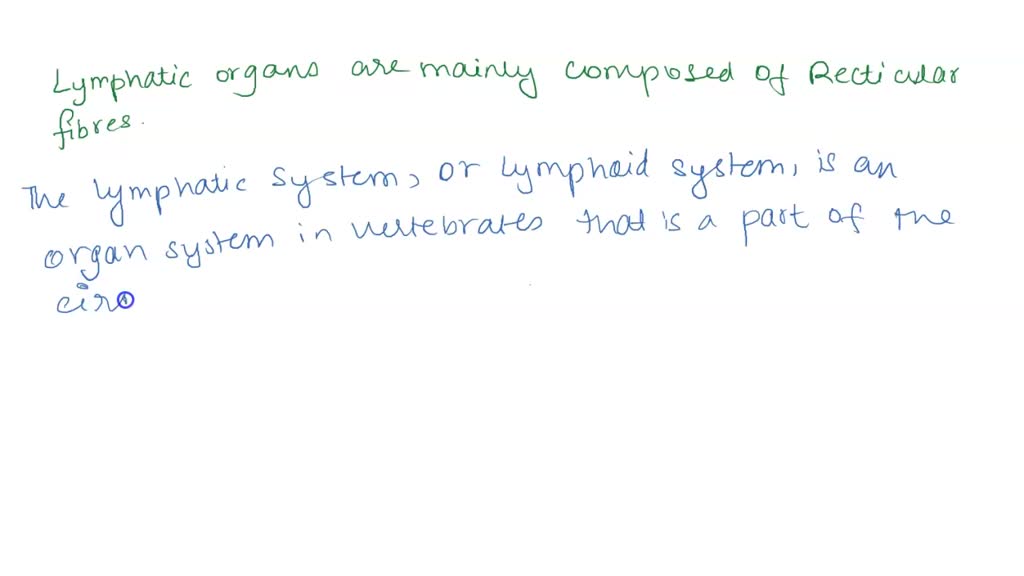 Lymphatic organs are mainly composed of Recticular
fibres.
The lymphatic system, or lymphoid system, is an
organ system in vertebrates that is a part of the
cir